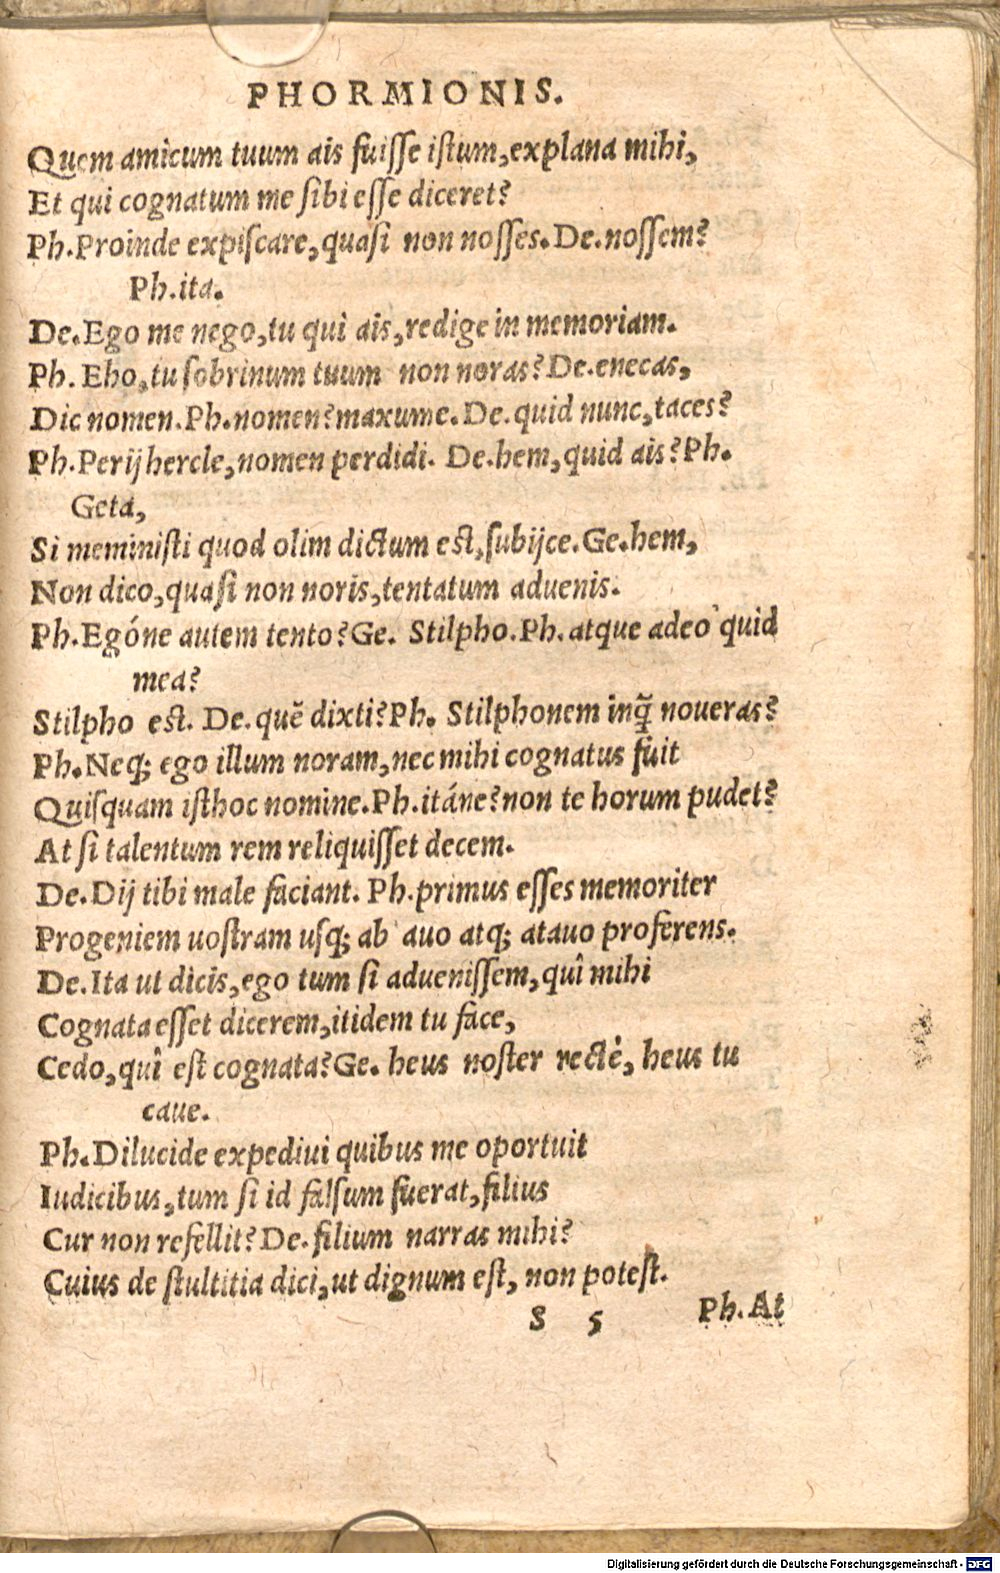 PHORMIONIS.
Quem amicum tuum ais fuisse istum, explana mihi,
Et qui cognatum me sibi esse diceret?
Ph. Proinde expiscare, quasi non nosses. De. nossem?
Ph. ita.
De. Ego me nego, tu qui ais, redige in memoriam.
Ph. Eho, tu sobrinum tuum non noras? De. enecas,
Dic nomen. Ph. nomen? maxume. De. quid nunc, taces?
Ph. Perij hercle, nomen perdidi. De. hem, quid ais? Ph.
Geta,
Si meministi quod olim dictum est, subijce. Ge. hem,
Non dico, quasi non noris, tentatum aduenis.
Ph. Egóne autem tento? Ge. Stilpho. Ph. atque adeò quid
mea?
Stilpho est. De. quẽ dixti? Ph. Stilphonem inq̃ noueras?
Ph. Neq; ego illum noram, nec mihi cognatus fuit
Quisquam isthoc nomine. Ph. itáne? non te horum pudet?
At si talentum rem reliquisset decem.
De. Dij tibi male faciant. Ph. primus esses memoriter
Progeniem uostram usq; ab auo atq; atauo proferens.
De. Ita ut dicis, ego tum si aduenissem, quî mihi
Cognata esset dicerem, itidem tu face,
Cedo, quî est cognata? Ge. heus noster rectè, heus tu
caue.
Ph. Dilucide expediui quibus me oportuit
Iudicibus, tum si id falsum fuerat, filius
Cur non refellit? De. filium narras mihi?
Cuius de stultitia dici, ut dignum est, non potest.
S 5 Ph. At
Digitalisierung gefördert durch die Deutsche Forschungsgemeinschaft - DFG